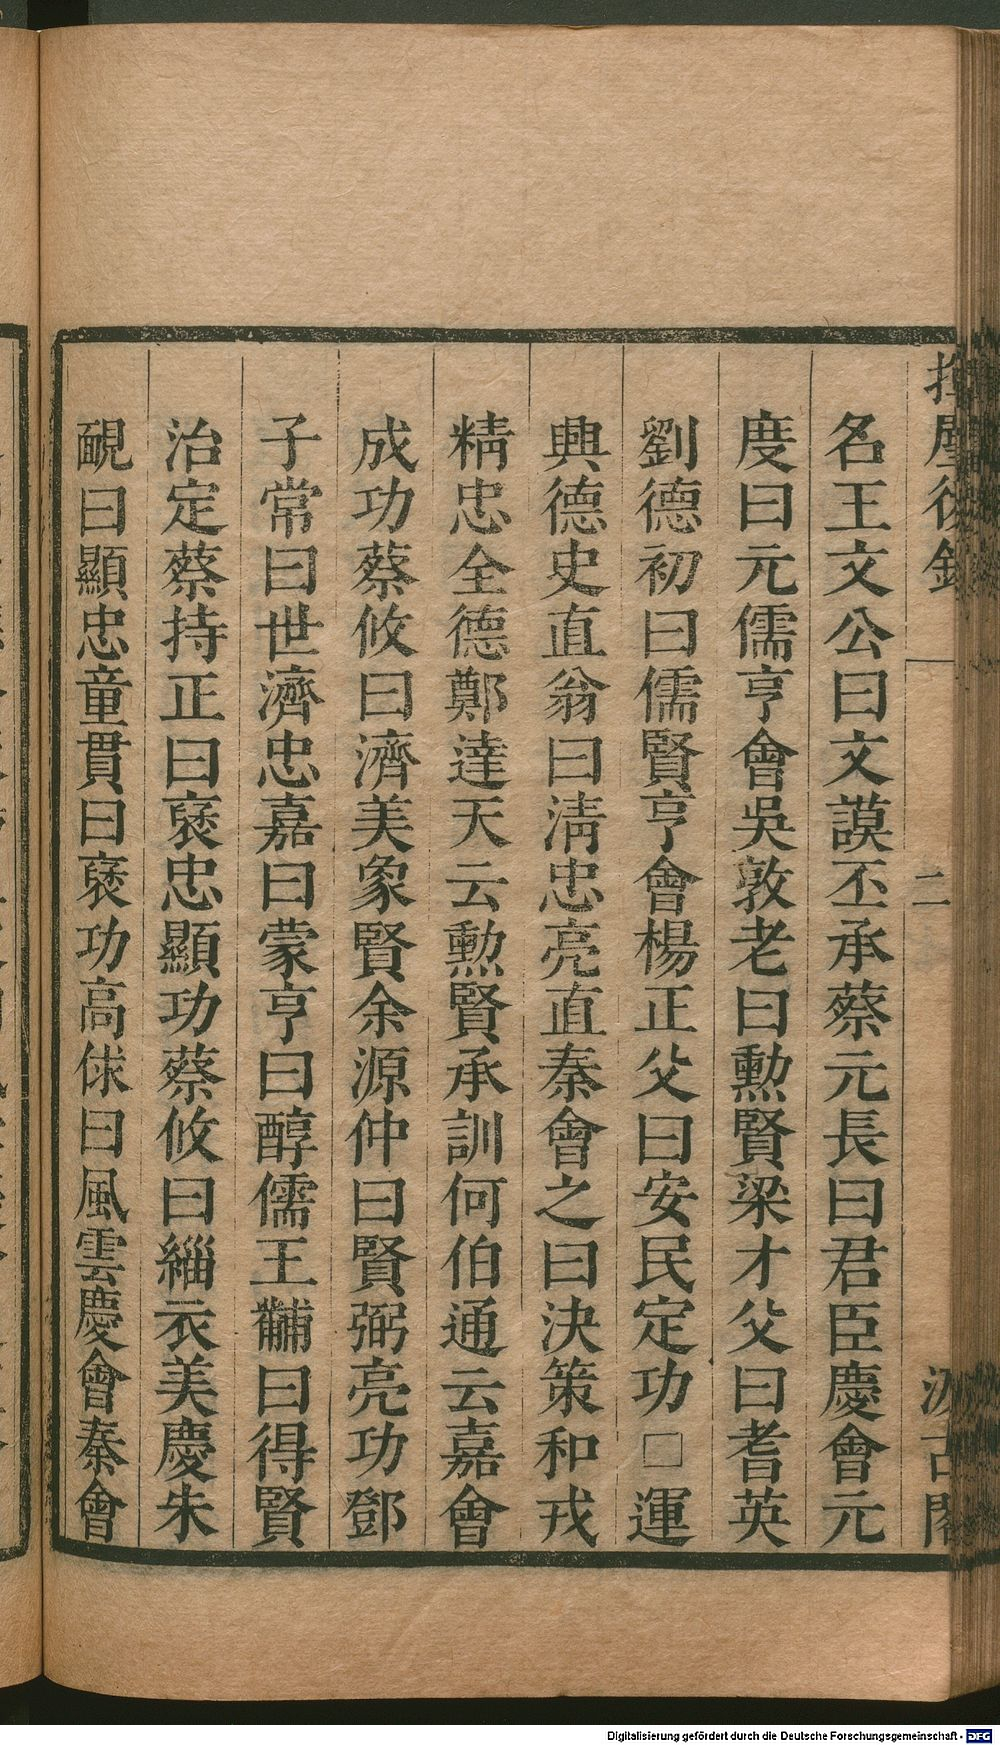 名王文公曰文謨丕承蔡元長曰君臣慶會元
度曰元儒亨會吳敦老曰勲賢梁才父曰耆英
劉德初曰儒賢亨會楊正父曰安民定功□運
興德史直翁曰清忠亮直秦會之曰決策和戎
精忠全德鄭達夫云勲賢承訓何伯通云嘉會
成功蔡攸曰濟美象賢余源仲曰賢弼亮功鄧
子常曰世濟忠嘉曰蒙亨曰醇儒王黼曰得賢
治定蔡持正曰襃忠顯功蔡攸曰緇衣美慶朱
勔曰顯忠童貫曰襃功高俅曰風雲慶會秦會
揮麈後錄
二
汲古閣
Digitalisierung gefördert durch die Deutsche Forschungsgemeinschaft - DFG